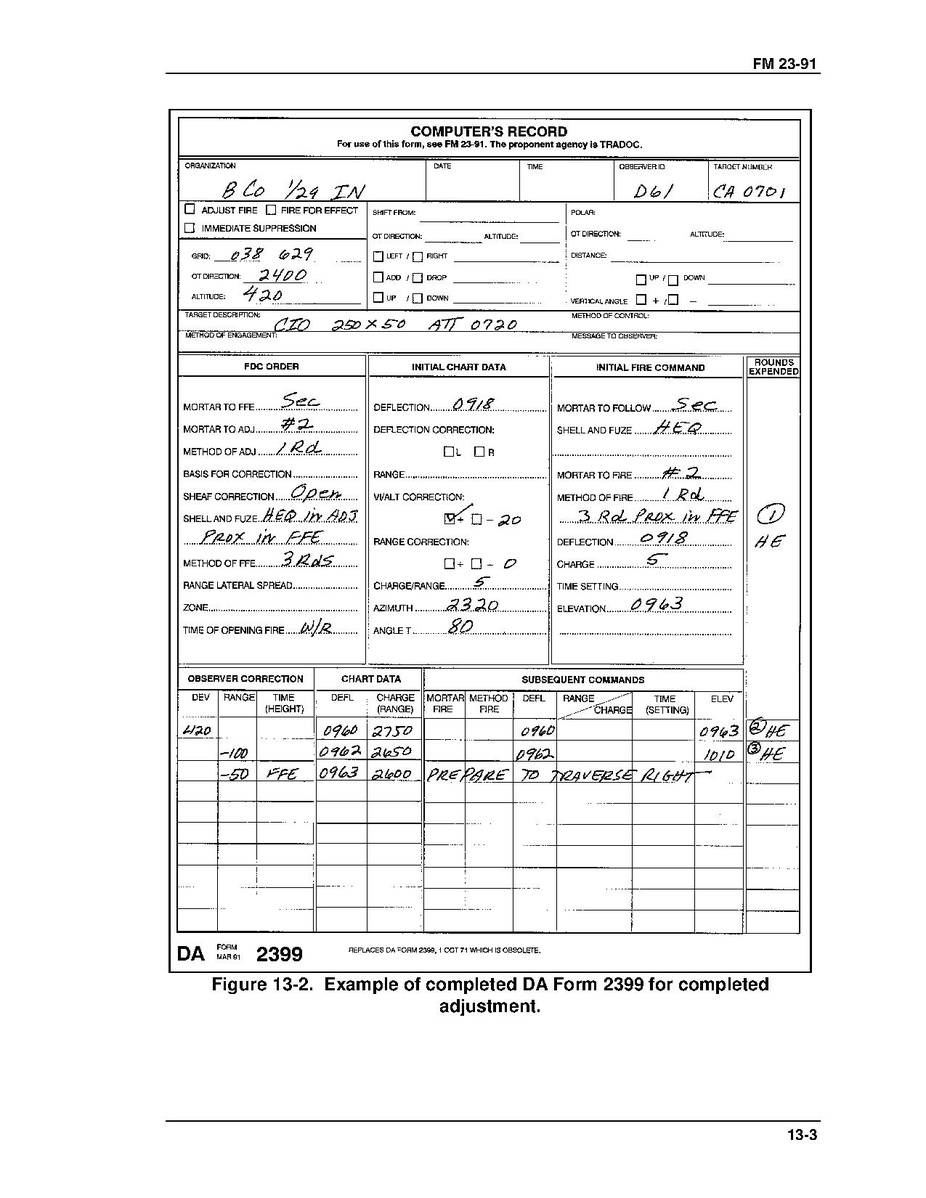 FM 23-91
COMPUTER'S RECORD
For use of this form, see FM 23-91. The proponent agency is TRADOC.
ORGANIZATION DATE TIME OBSERVER ID TARGET NUMBER
B Co 1/29 IN D61 CA 0701
☐ ADJUST FIRE ☐ FIRE FOR EFFECT
☐ IMMEDIATE SUPPRESSION
GRID: 038 629
OT DIRECTION: 2400
ALTITUDE: 420
SHIFT FROM:
OT DIRECTION: ALTITUDE:
☐ LEFT / ☐ RIGHT
☐ ADD / ☐ DROP
☐ UP / ☐ DOWN
POLAR:
OT DIRECTION: ALTITUDE:
DISTANCE:
☐ UP / ☐ DOWN
VERTICAL ANGLE ☐ + / ☐ −
TARGET DESCRIPTION: CIO 250 X 50 ATT 0720 METHOD OF CONTROL:
METHOD OF ENGAGEMENT: MESSAGE TO OBSERVER:
FDC ORDER
MORTAR TO FFE Sec
MORTAR TO ADJ #2
METHOD OF ADJ 1 Rd
BASIS FOR CORRECTION
SHEAF CORRECTION Open
SHELL AND FUZE HEQ in ADJ
PROX in FFE
METHOD OF FFE 3 Rds
RANGE LATERAL SPREAD
ZONE
TIME OF OPENING FIRE W/R
INITIAL CHART DATA
DEFLECTION 0918
DEFLECTION CORRECTION:
☐ L ☐ R
RANGE
VI/ALT CORRECTION:
☑ + ☐ − 20
RANGE CORRECTION:
☐ + ☐ − 0
CHARGE/RANGE 5
AZIMUTH 2320
ANGLE T 80
INITIAL FIRE COMMAND
MORTAR TO FOLLOW Sec
SHELL AND FUZE HEQ
MORTAR TO FIRE #2
METHOD OF FIRE 1 Rd
3 Rd Prox in FFE
DEFLECTION 0918
CHARGE 5
TIME SETTING
ELEVATION 0963
ROUNDS
EXPENDED
①
HE
OBSERVER CORRECTION CHART DATA SUBSEQUENT COMMANDS
DEV RANGE TIME (HEIGHT) DEFL CHARGE (RANGE) MORTAR FIRE METHOD FIRE DEFL RANGE CHARGE TIME (SETTING) ELEV
420 0960 2750 0960 0963 ② HE
-100 0962 2650 0962 1010 ③ HE
-50 FFE 0963 2600 PREPARE TO TRAVERSE RIGHT
DA FORM MAR 91 2399 REPLACES DA FORM 2399, 1 OCT 71 WHICH IS OBSOLETE.
Figure 13-2. Example of completed DA Form 2399 for completed
adjustment.
13-3